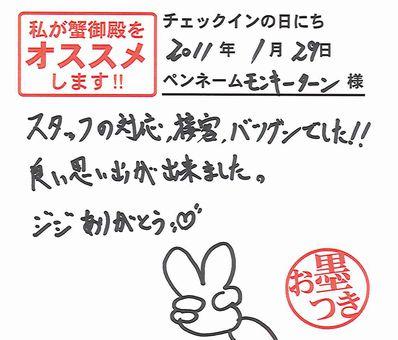 私が蟹御殿を
オススメ
します!!
チェックインの日にち
2011年 1月 29日
ペンネームモンキーターン 様
スタッフの対応,接客,バツグンでした!!
良い思い出が出来ました。
ジジありがとう:♡
墨
お
つき